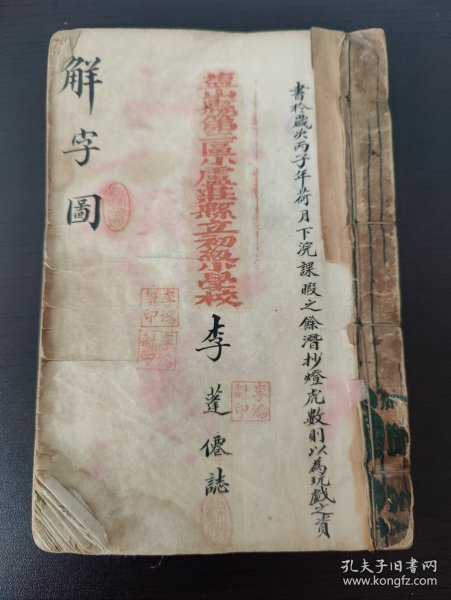 書於歲次丙子年荷月下浣課暇之餘潛抄燈虎數則以為玩戲之資
鹽山縣第二區小盧莊縣立初級小學校
李蓬僊誌
解字圖
孔夫子旧书网
www.kongfz.com